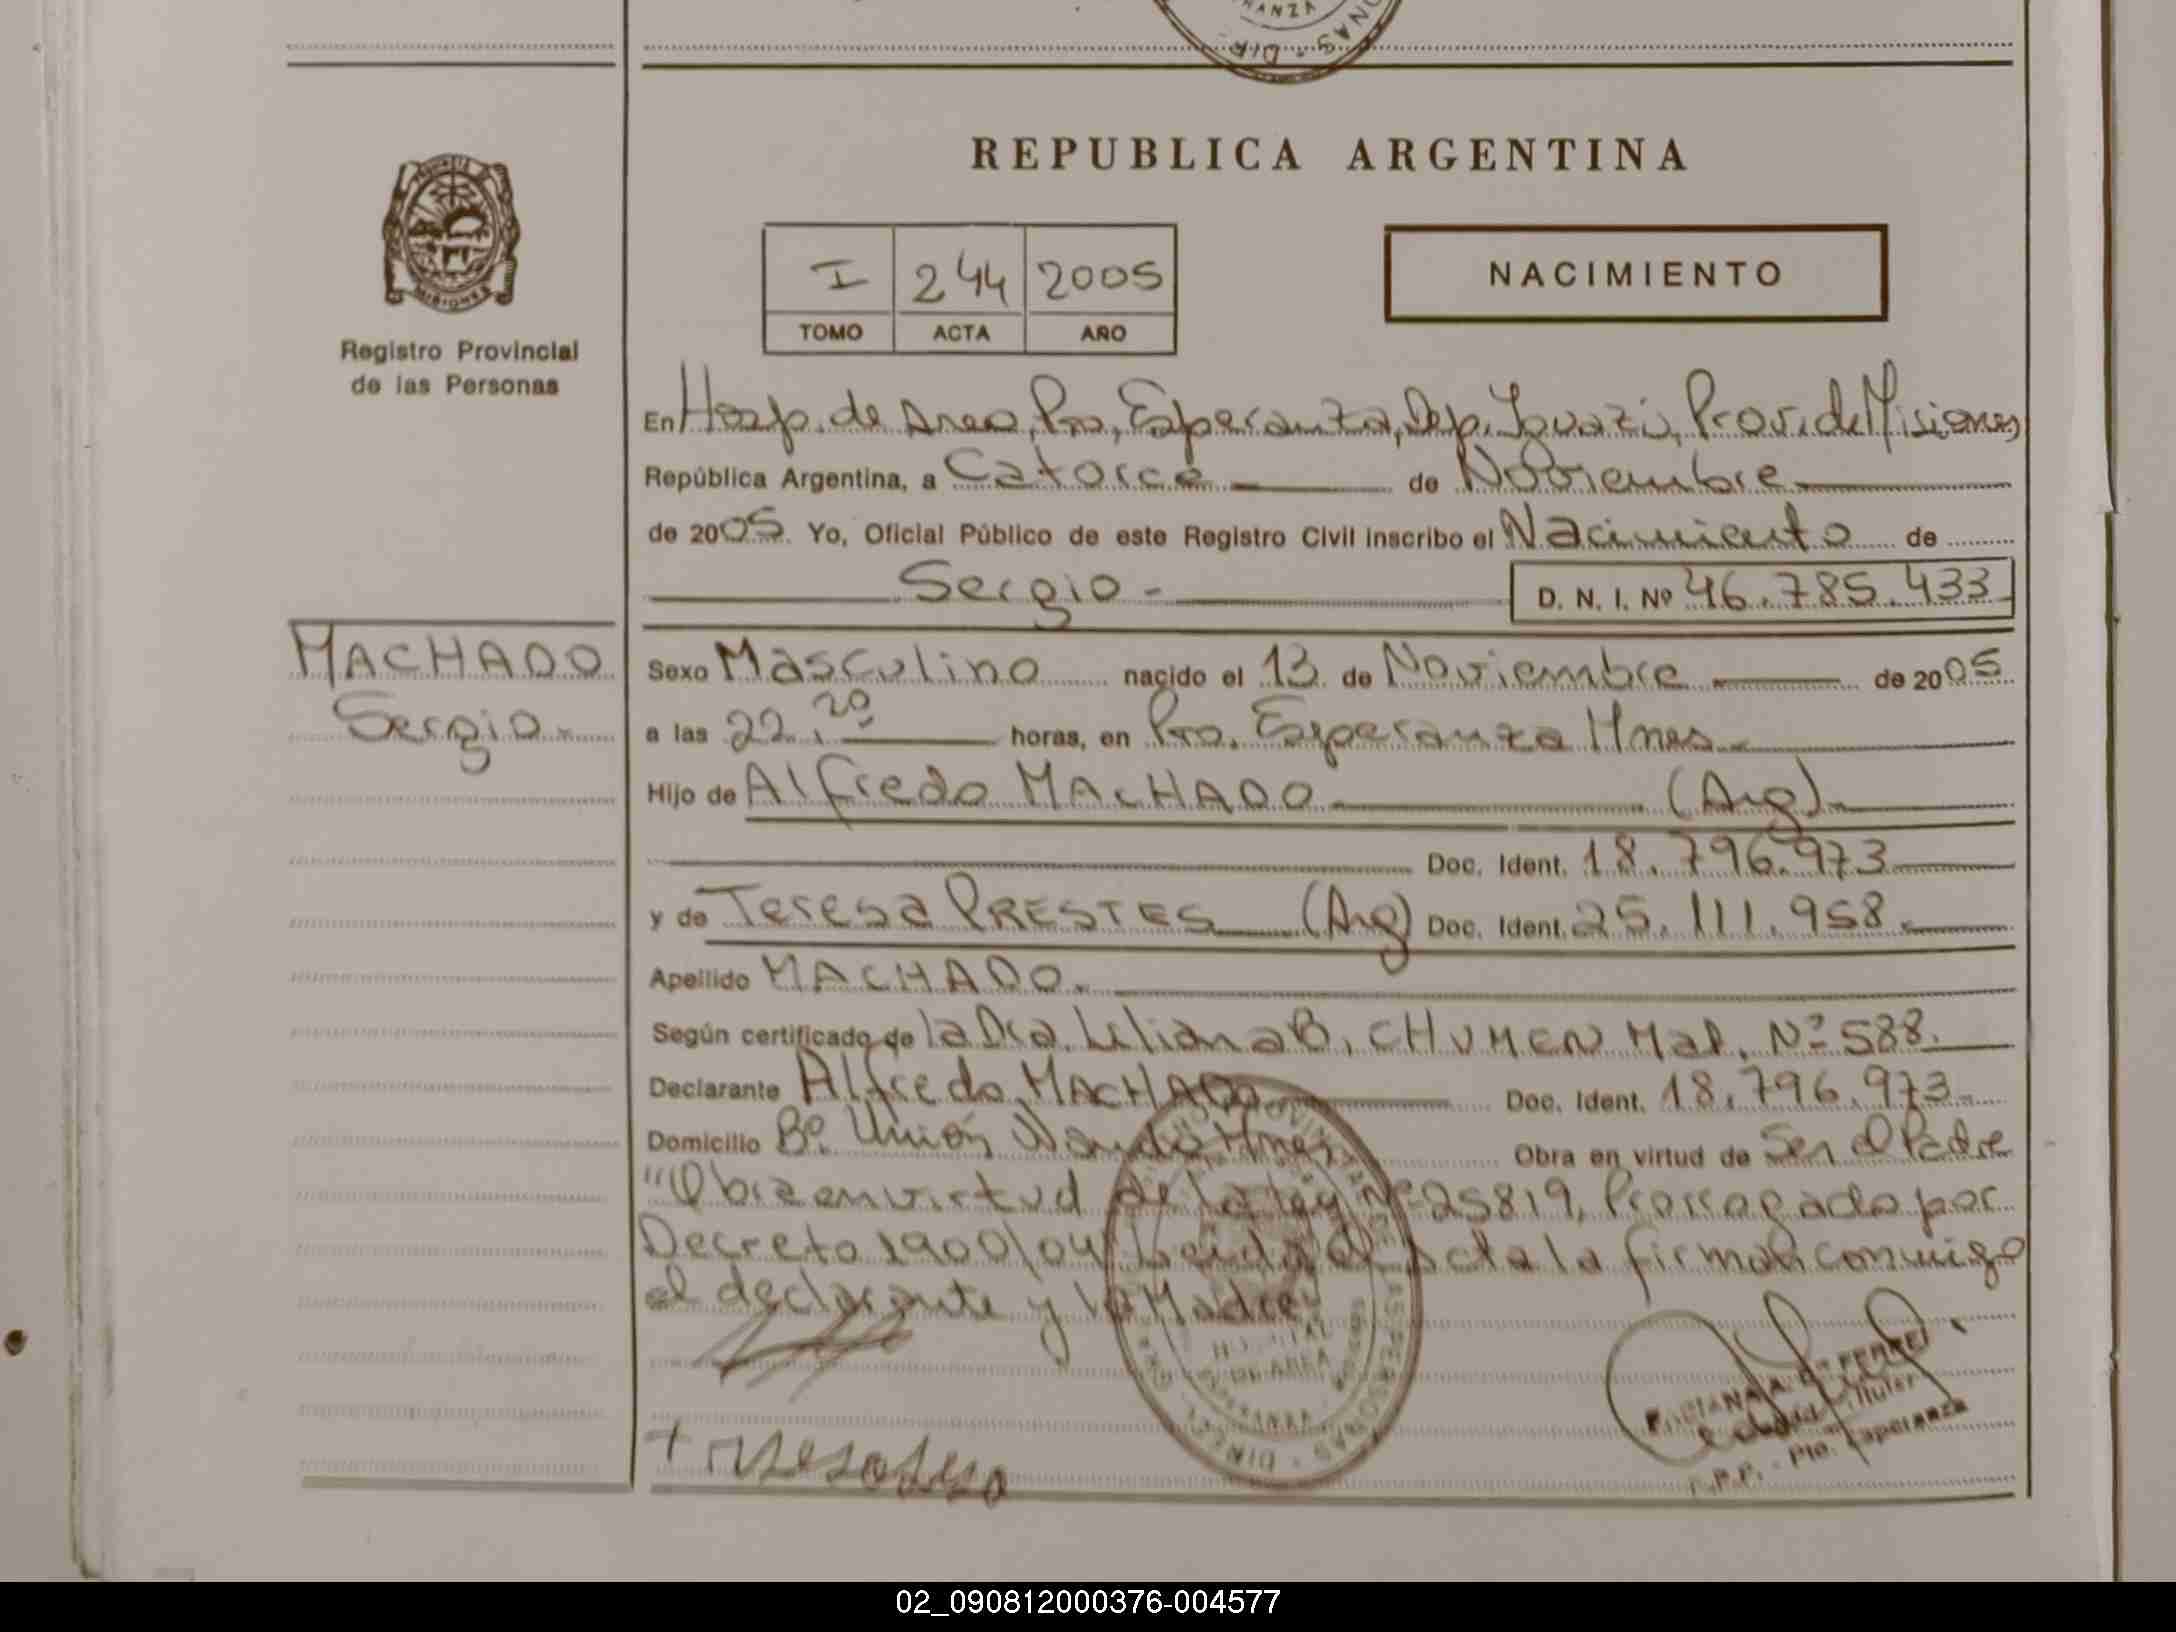 REPUBLICA ARGENTINA
MISIONES
Registro Provincial
de las Personas
I 244 2005
TOMO ACTA AÑO
NACIMIENTO
En Hosp. de Area, Pto, Esperanza, Dep. Iguazú, Prov. de Misiones
República Argentina, a Catorce de Noviembre
de 2005. Yo, Oficial Público de este Registro Civil inscribo el Nacimiento de
Sergio - D. N. I. Nº 46.785.433
MACHADO
Sergio.-
Sexo Masculino nacido el 13 de Noviembre de 2005
a las 22,20 horas, en Pto. Esperanza Mnes.
Hijo de Alfredo MACHADO (Arg).
Doc. Ident. 18.796.973
y de Teresa PRESTES (Arg) Doc. Ident. 25.111.958.
Apellido MACHADO.
Según certificado de la Dra. Liliana B. CHUMEN Mat. Nº 588.
Declarante Alfredo MACHADO Doc. Ident. 18.796.973.
Domicilio Bº. Unión Wanda Mnes Obra en virtud de Ser el Padre
"Obra en virtud de la ley Nº 25819, Prorrogado por
Decreto 1900/04 Leida el Acta la firman conmigo
el declarante y la Madre
HOSPITAL
DE AREA
ESPERANZA
Pto. Esperanza
02_090812000376-004577